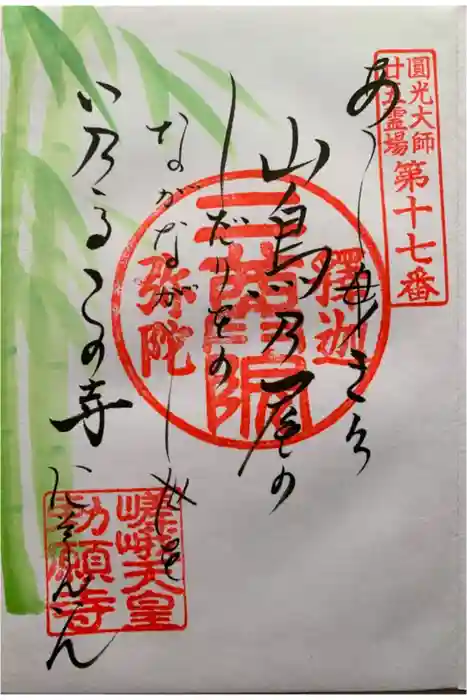 圓光大師
廿五霊場
第十七番
あしびきの
山鳥乃尾の
しだりをの
ながながし世を
い乃るこの寺
にそんゐん
釋迦
二尊院
弥陀
嵯峨天皇
勅願寺